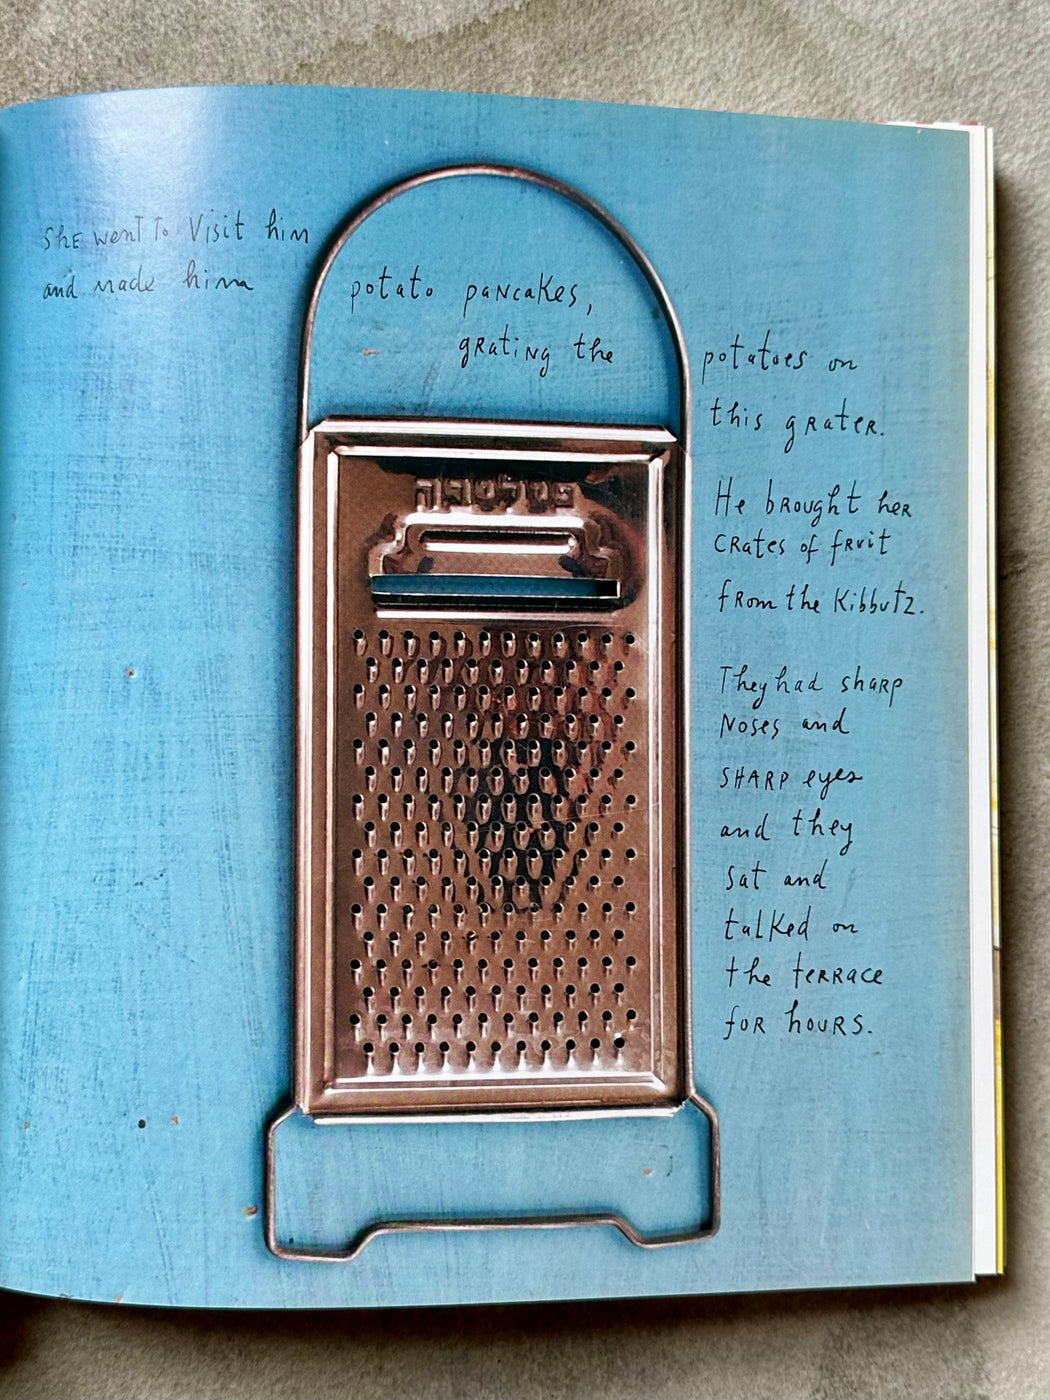 She went to visit him
and made him potato pancakes,
grating the potatoes on
this grater.
He brought her
crates of fruit
from the Kibbutz.
They had sharp
Noses and
SHARP eyes
and they
sat and
talked on
the terrace
for hours.